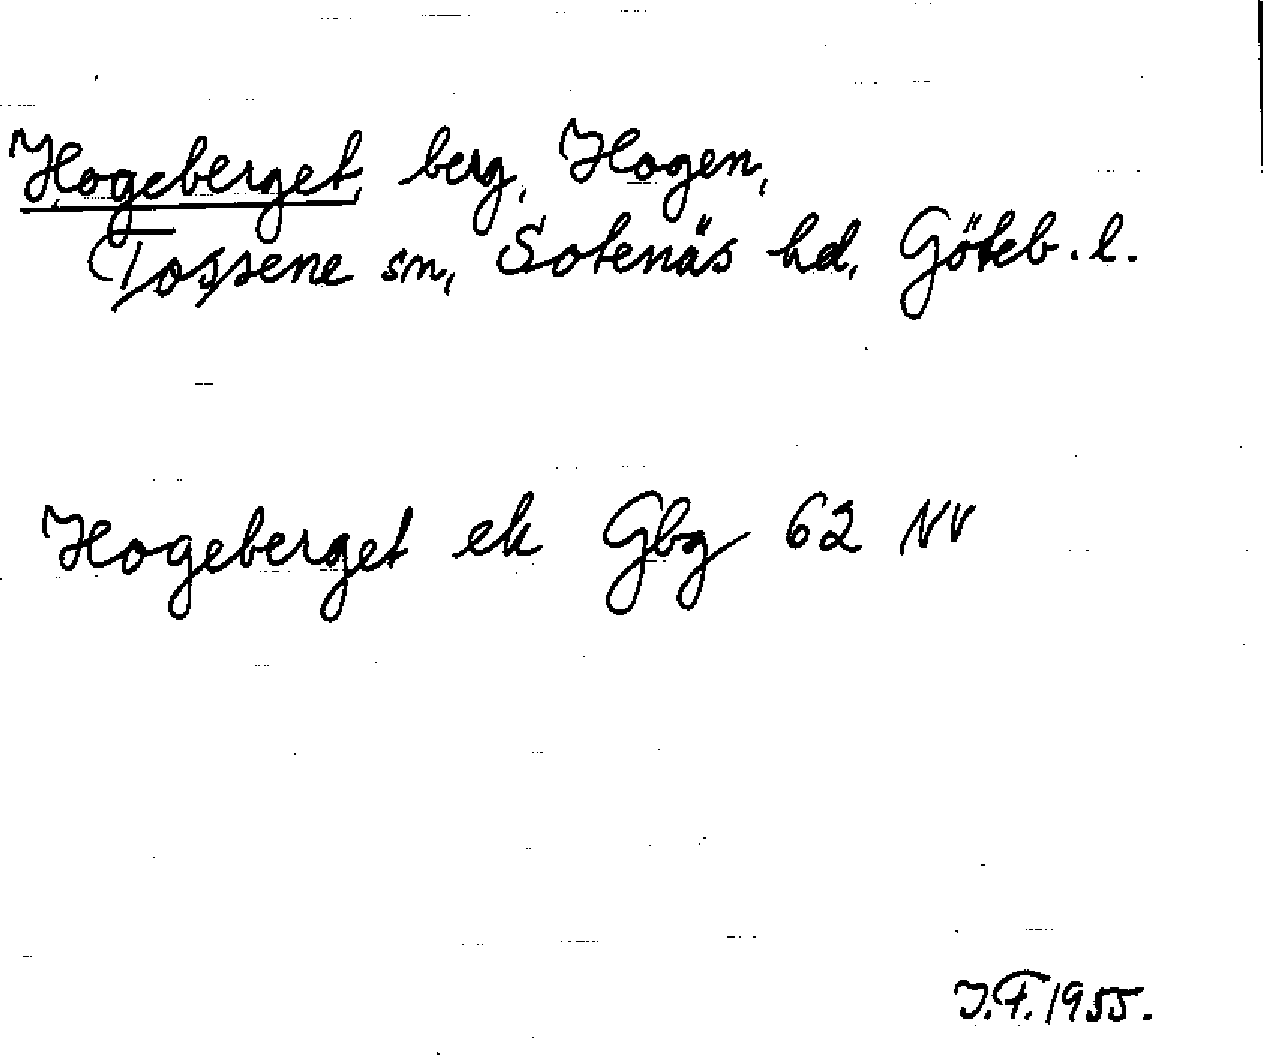 Hogeberget, berg, Hogen,
Tossene sn, Sotenäs hd, Göteb. l.
Hogeberget ek Gbg 62 NV
J.F. 1955.